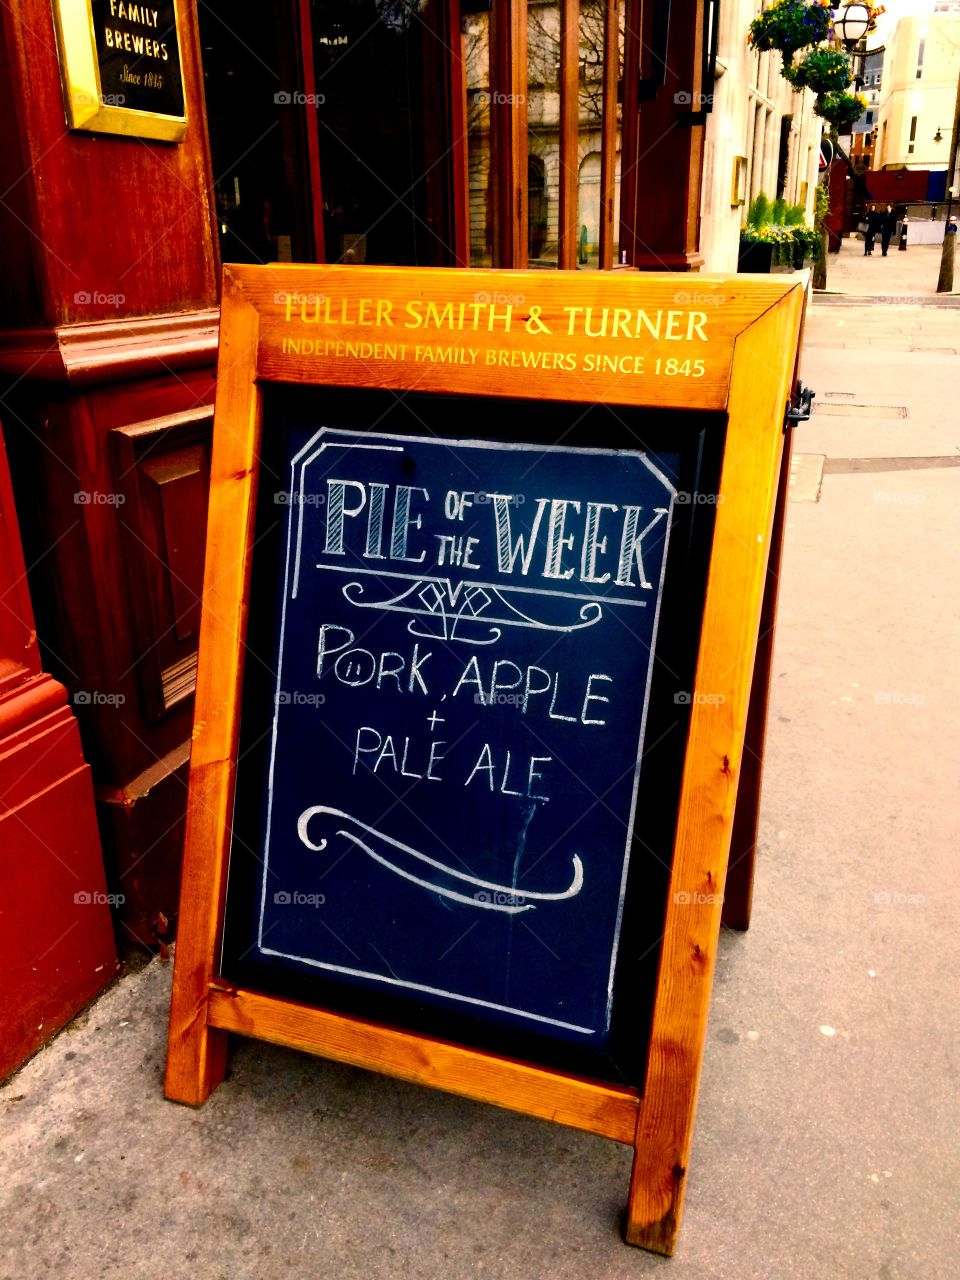 FAMILY
BREWERS
Since 1845
FULLER SMITH & TURNER
INDEPENDENT FAMILY BREWERS SINCE 1845
PIE OF THE WEEK
PORK, APPLE
+
PALE ALE
foap